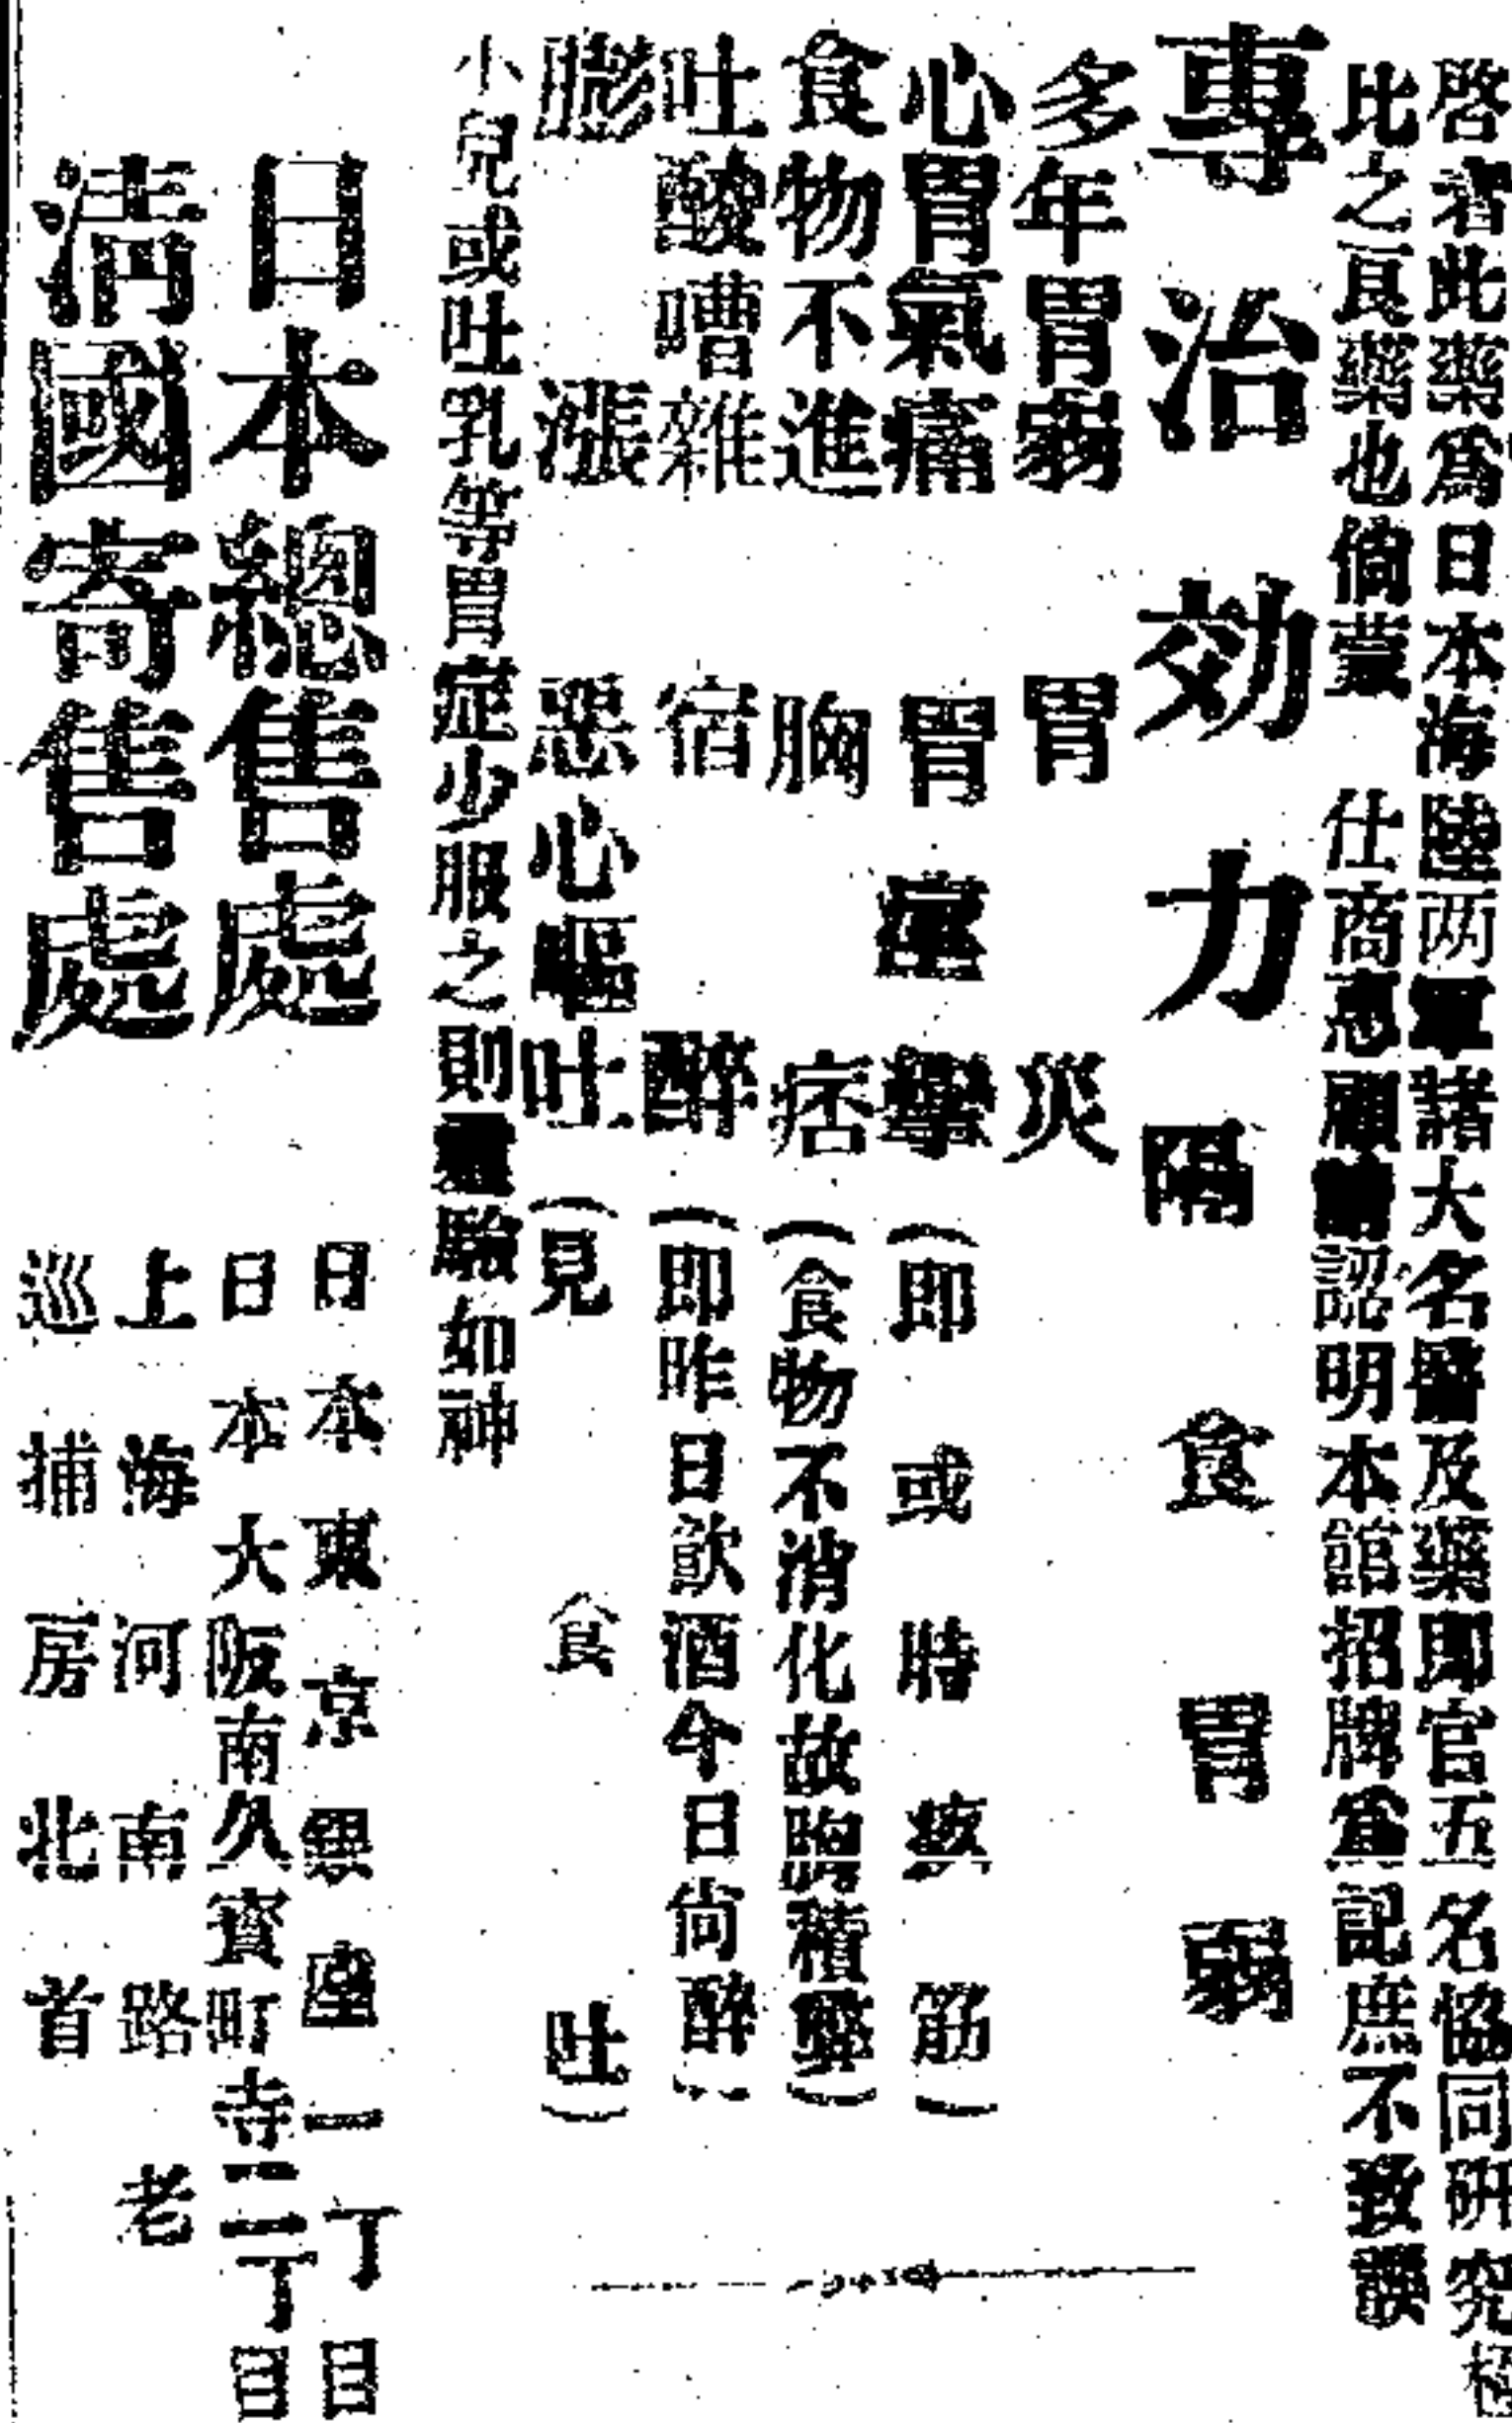 啓者此藥爲日本海陸两軍諸大名醫及藥即官五一名協同硏究極
比之良藥也倘蒙 仕商惠顧請認明本舘招牌爲記庶不致誤
專治効力 隔食胃弱
多年胃弱 胃災
心胃氣痛 胃痙攣(即或時痰筋)
食物不進 胸痞(食物不消化故胸積)
吐酸嘈雜 宿醉(即昨日飮酒今日尙醉)
膨漲 惡心嘔吐(見食吐)
小兒或吐乳等胃症少服之則靈驗如神
日本總售處 日本東京銀座一丁目
日本大阪南久寳町寺二丁目
淸國寄售處 上海河南路老
巡捕房北首